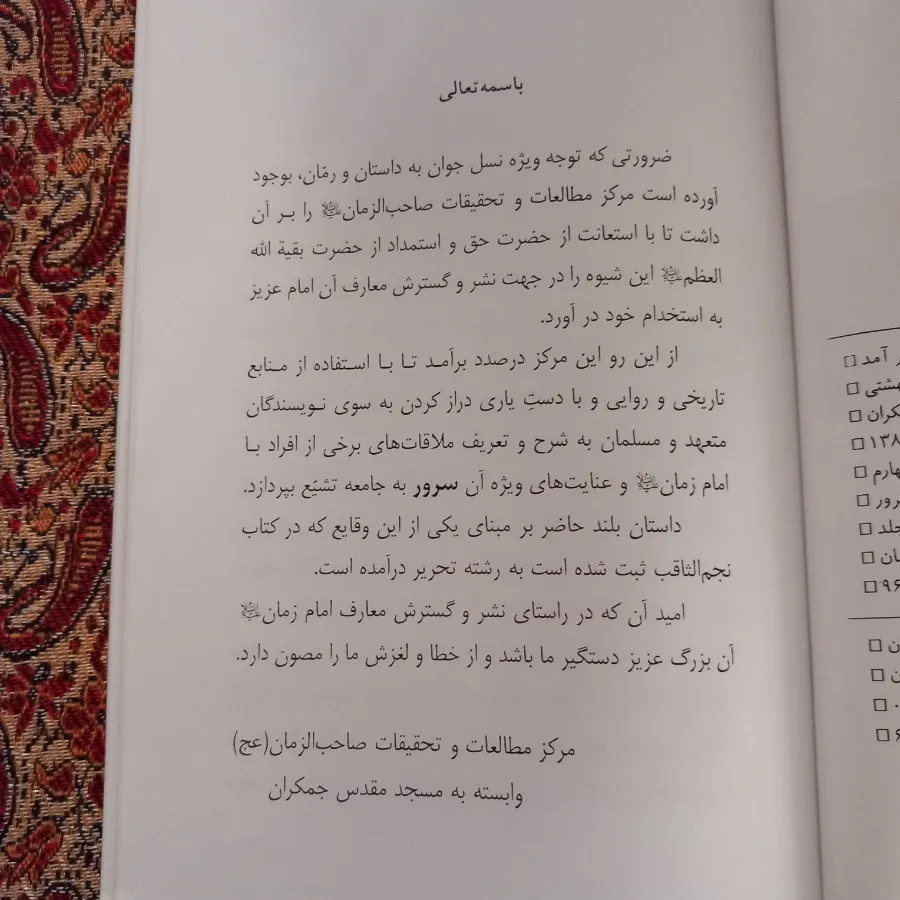 باسمه تعالی
ضرورتی که توجه ویژه نسل جوان به داستان و رمّان، بوجود
آورده است مرکز مطالعات و تحقیقات صاحب‌الزمان را بر آن
داشت تا با استعانت از حضرت حق و استمداد از حضرت بقیة الله
العظم این شیوه را در جهت نشر و گسترش معارف آن امام عزیز
به استخدام خود در آورد.
از این رو این مرکز درصدد برآمد تا با استفاده از منابع
تاریخی و روایی و با دستِ یاری دراز کردن به سوی نویسندگان
متعهد و مسلمان به شرح و تعریف ملاقات‌های برخی از افراد با
امام زمان و عنایت‌های ویژه آن سرور به جامعه تشیّع بپردازد.
داستان بلند حاضر بر مبنای یکی از این وقایع که در کتاب
نجم‌الثاقب ثبت شده است به رشته تحریر درآمده است.
امید آن که در راستای نشر و گسترش معارف امام زمان
آن بزرگ عزیز دستگیر ما باشد و از خطا و لغزش ما را مصون دارد.
مرکز مطالعات و تحقیقات صاحب‌الزمان(عج)
وابسته به مسجد مقدس جمکران
آمد